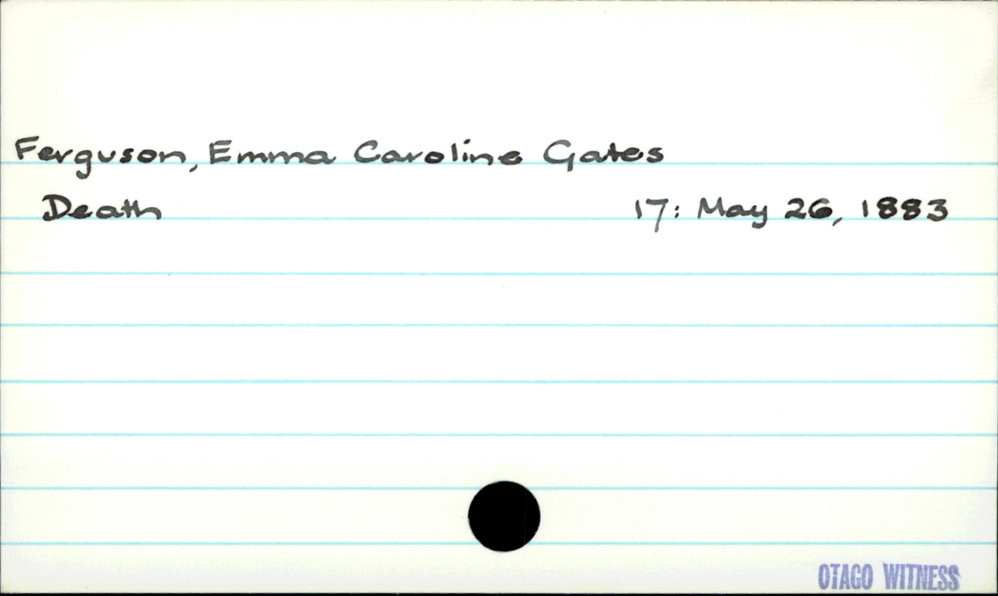 Ferguson, Emma Caroline Gates
Death 17: May 26, 1883
OTAGO WITNESS